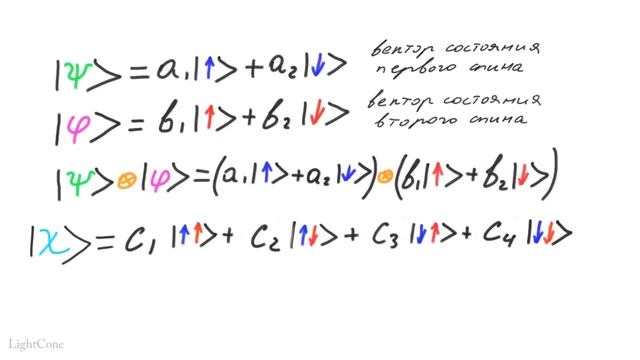 |ψ> = a₁|↑> + a₂|↓> вектор состояния первого спина
|φ> = b₁|↑> + b₂|↓> вектор состояния второго спина
|ψ> ⊗ |φ> = (a₁|↑> + a₂|↓>) ⊗ (b₁|↑> + b₂|↓>)
|χ> = C₁|↑↑> + C₂|↑↓> + C₃|↓↑> + C₄|↓↓>
LightCone